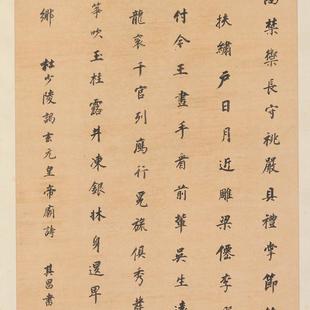 高禁禦長守祧嚴具禮掌節
扶繡戶日月近雕梁僊李
付今王畫手看前輩吳生遠
龍袞千官列鴈行冕旒俱秀發
箏吹玉柱露井凍銀牀身退卑
鄉 杜少陵謁玄元皇帝廟詩 其昌書